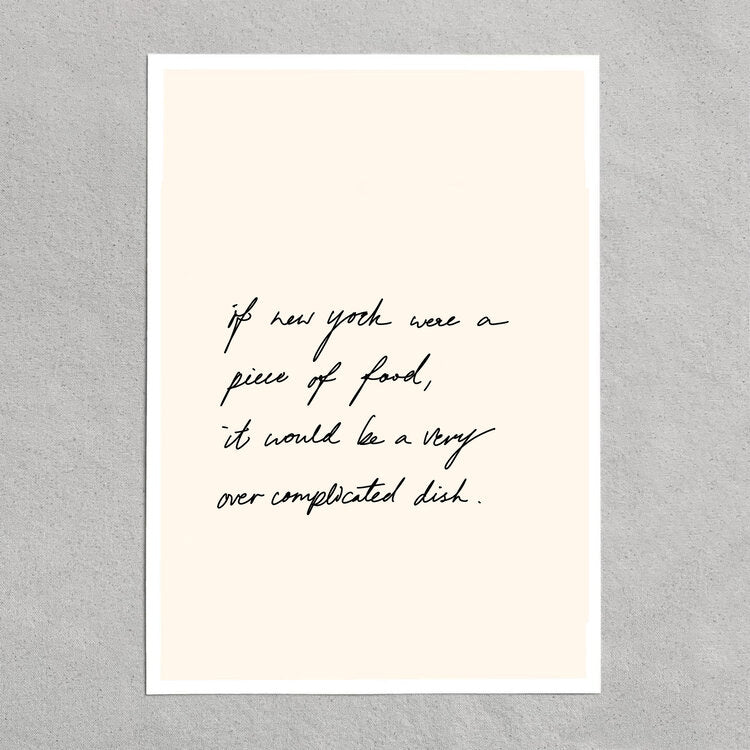 if new york were a
piece of food,
it would be a very
over complicated dish.